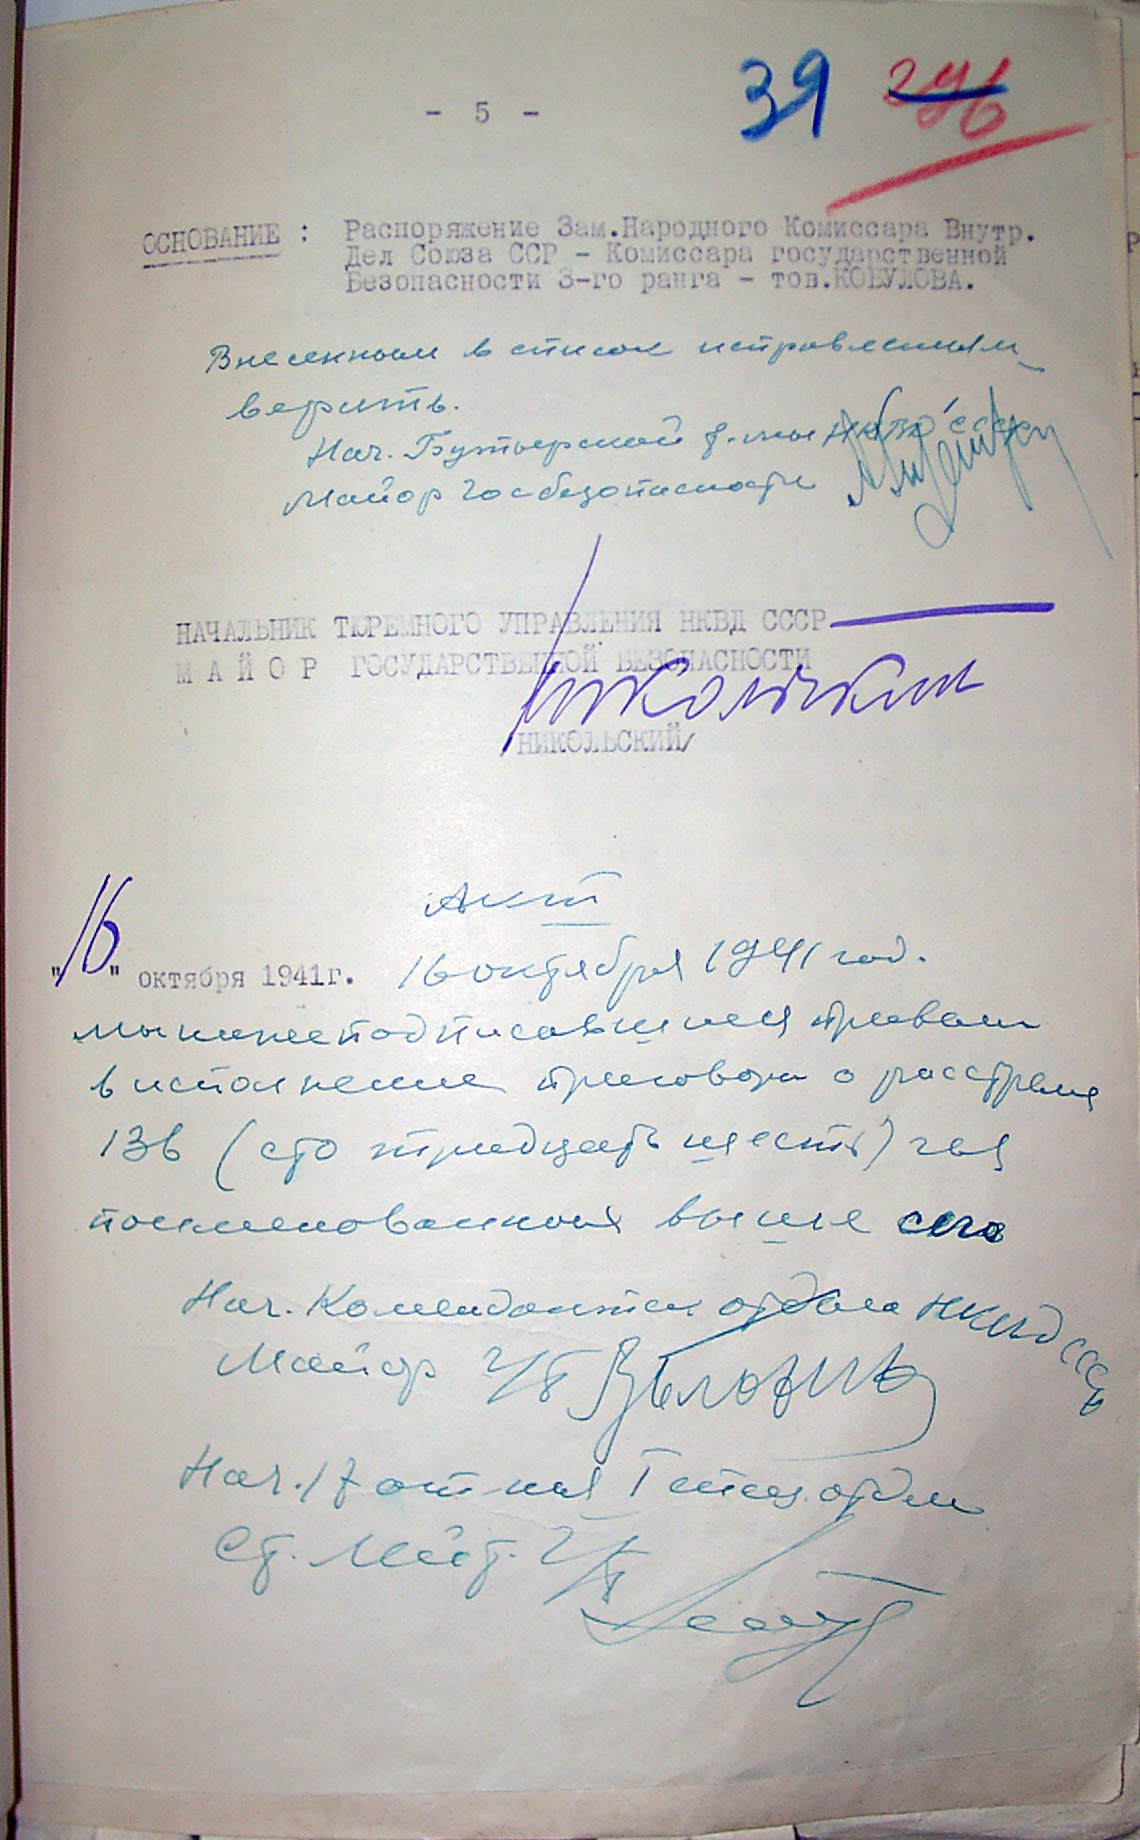 - 5 -
39 296
ОСНОВАНИЕ : Распоряжение Зам.Народного Комиссара Внутр.
Дел Союза ССР - Комиссара государственной
Безопасности 3-го ранга - тов.КОБУЛОВА.
Внесенным в список исправлениям
верить.
Нач. Бутырской тюрьмы НКВД СССР
Майор Госбезопасности
НАЧАЛЬНИК ТЮРЕМНОГО УПРАВЛЕНИЯ НКВД СССР
МАЙОР ГОСУДАРСТВЕННОЙ БЕЗОПАСНОСТИ
Никольский
НИКОЛЬСКИЙ/
Акт
"16" октября 1941г. 16 октября 1941 год.
мы нижеподписавшиеся привели
в исполнение приговора о расстреле
136 (сто тридцать шесть) чел
поименованных выше сего
Нач. Комендантск отдела НКВД СССР
Майор г/б Блохин
Нач. 17 отд-ния I спец. отдела
Ст. Лейт. г/б